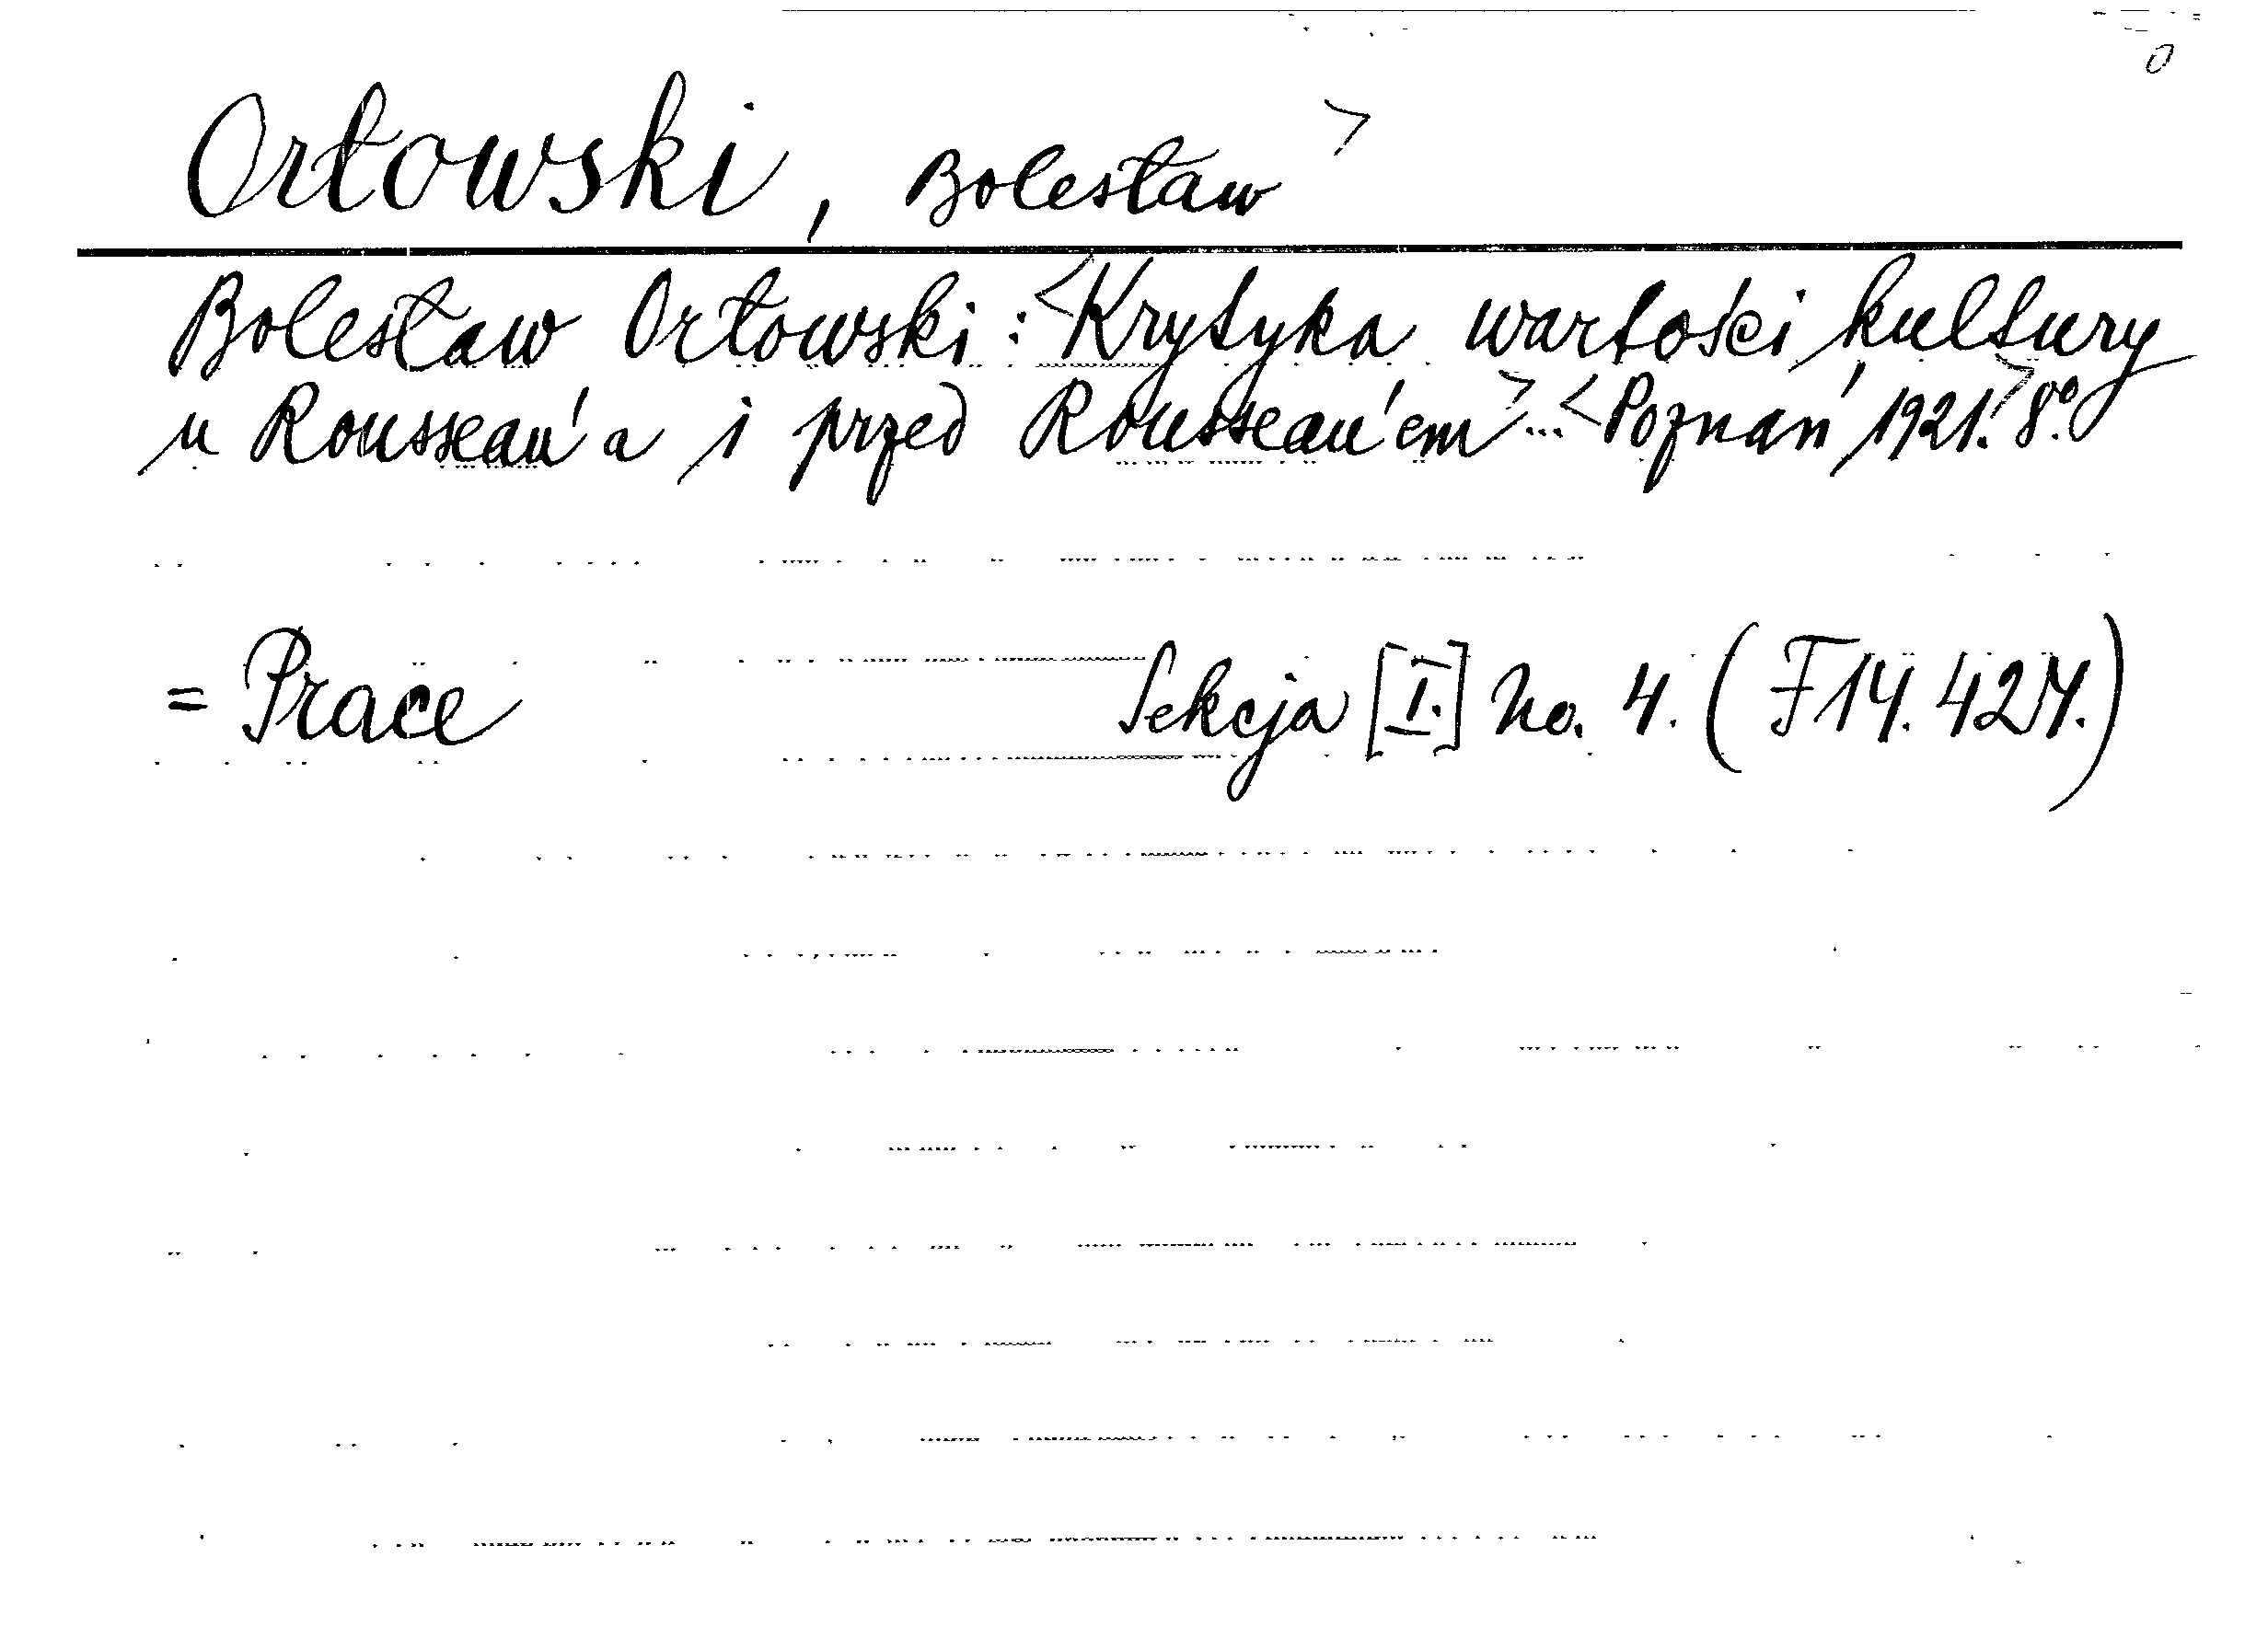 Orłowski, Bolesław >
Bolesław Orłowski: <Krytyka wartości kultury
u Rousseau'a i przed Rousseau'em> ... <Poznań, 1921.> 8.°
= Prace Sekcja [I.] No. 4. (F14.427.)